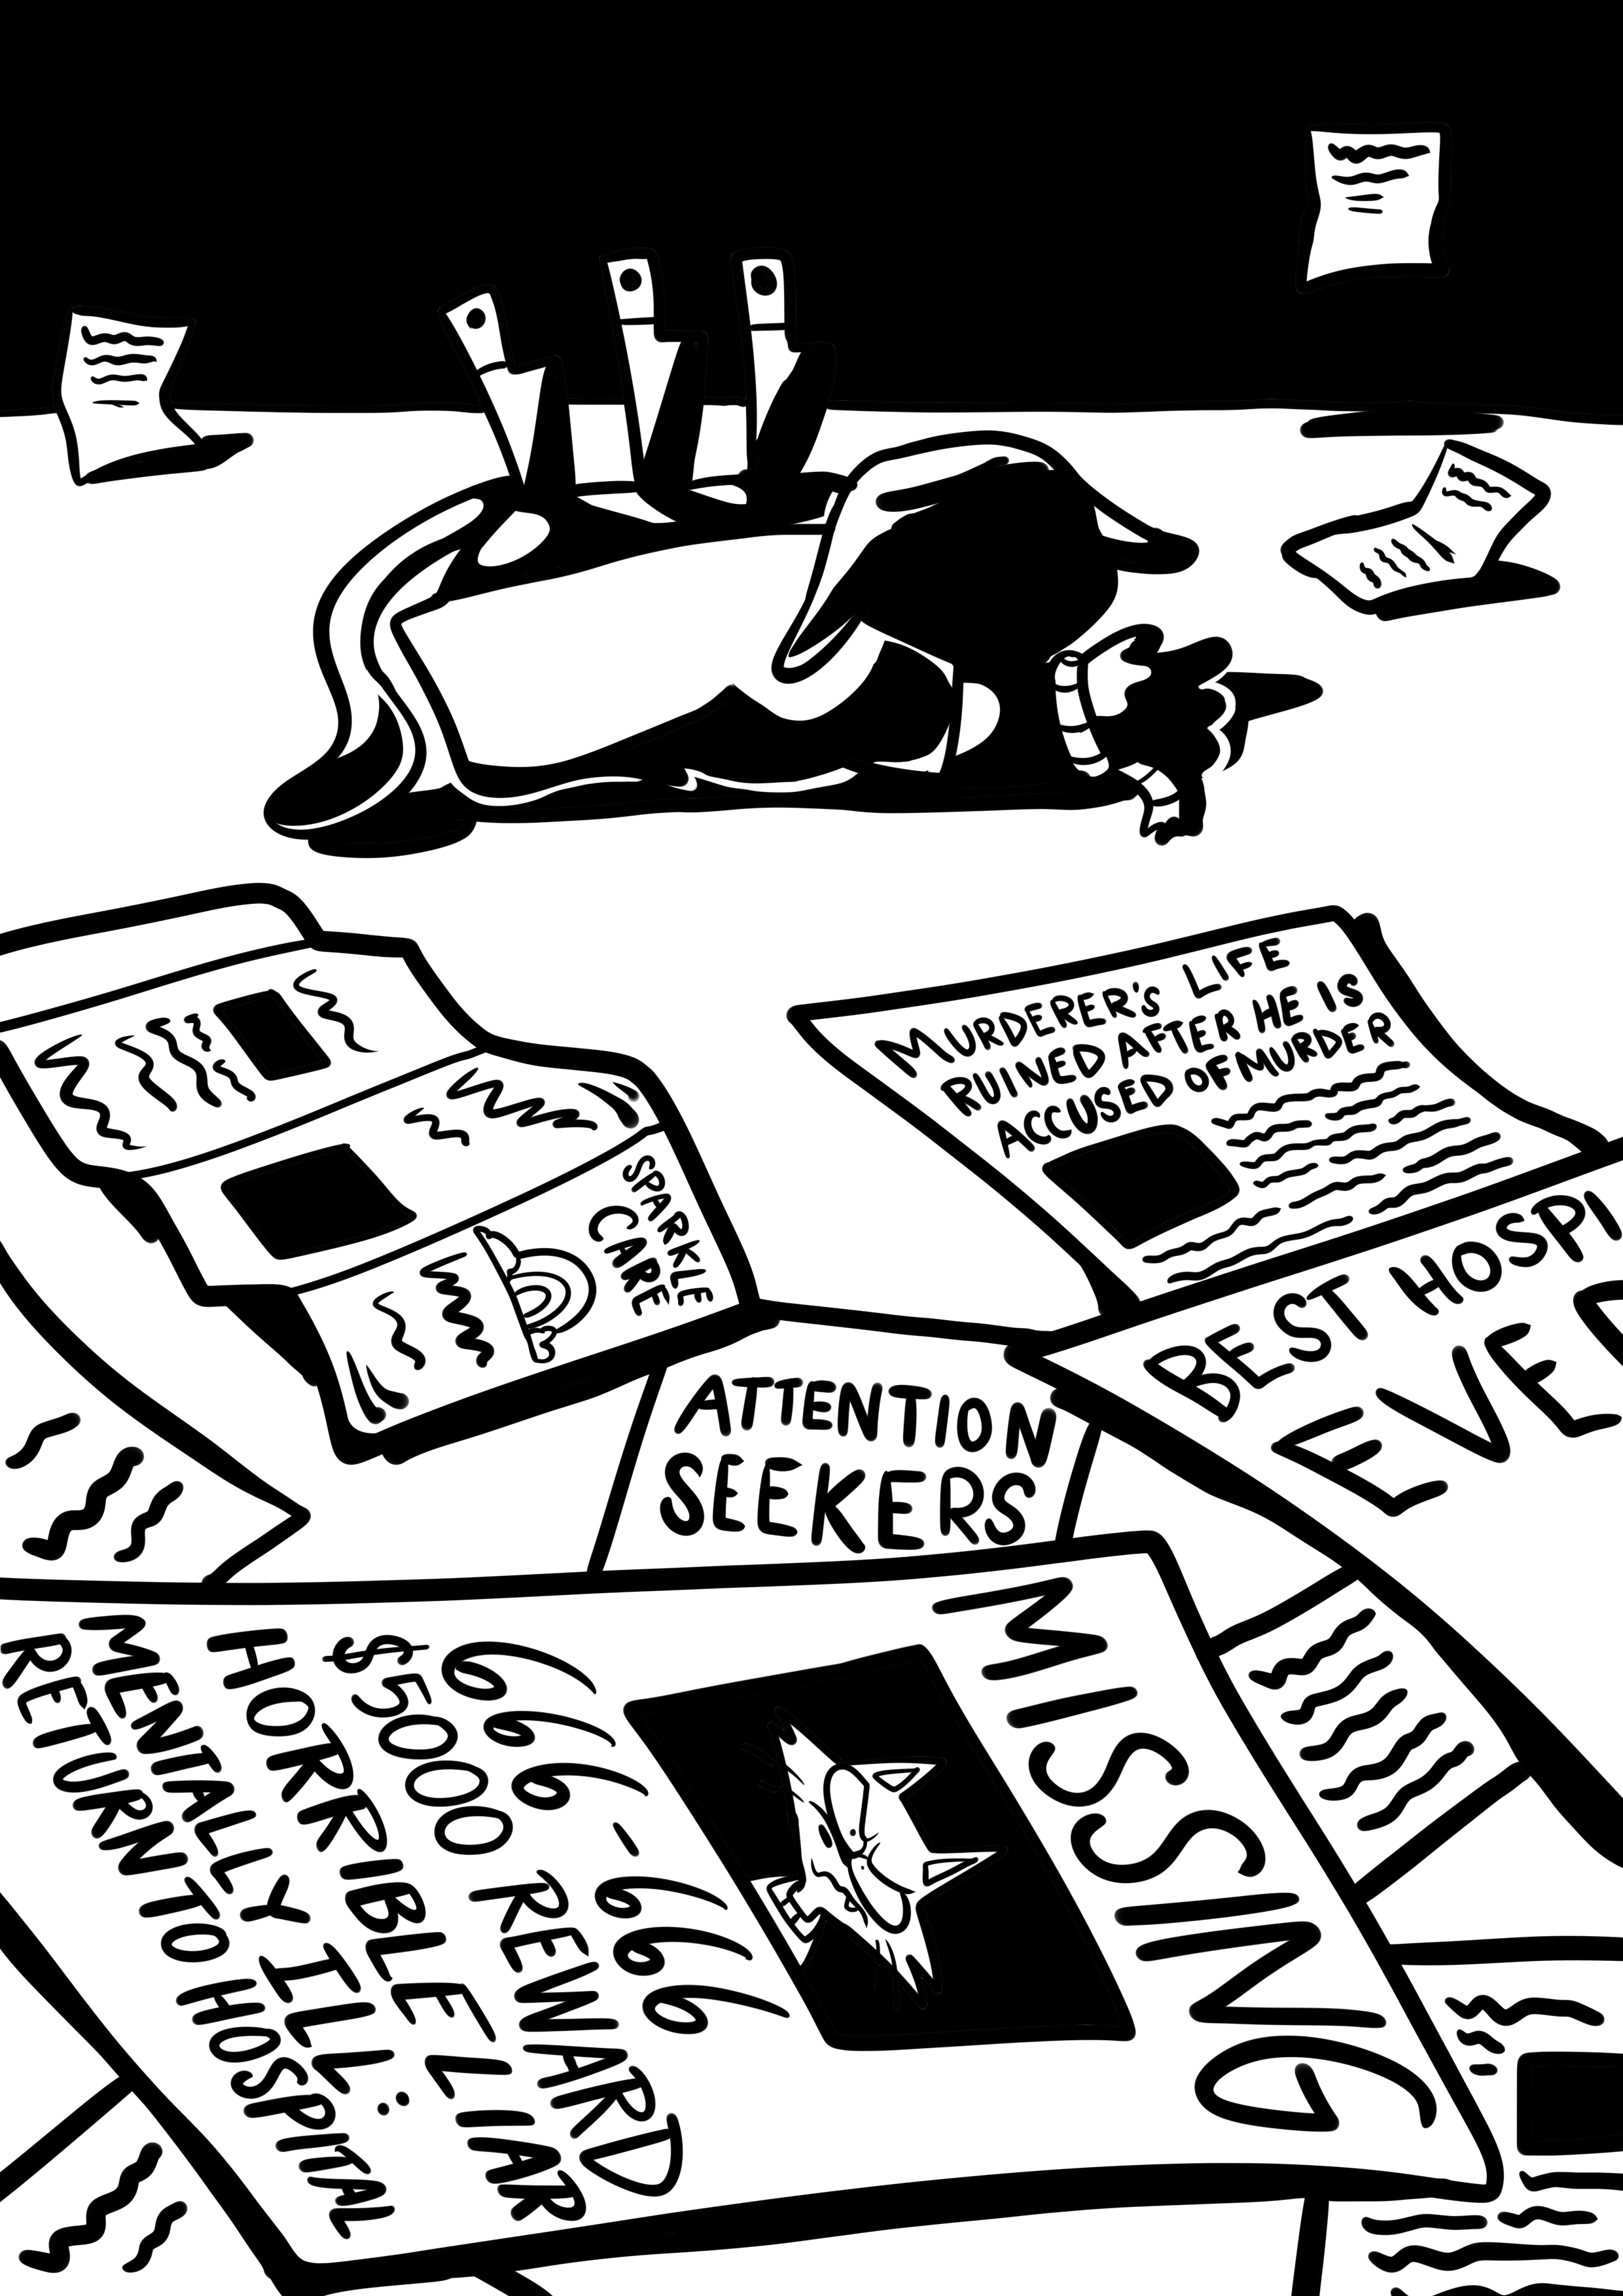 MURDERER'S LIFE
RUINED AFTER HE IS
ACCUSED OF MURDER
SPARKLE
CARE
BEST HOSP
ATTENTION
SEEKERS
MISSING
666-666
$5000 REWARD
HORRIBLE LIAR
MENTALLY ILL:
RETURN TO HOSPITAL